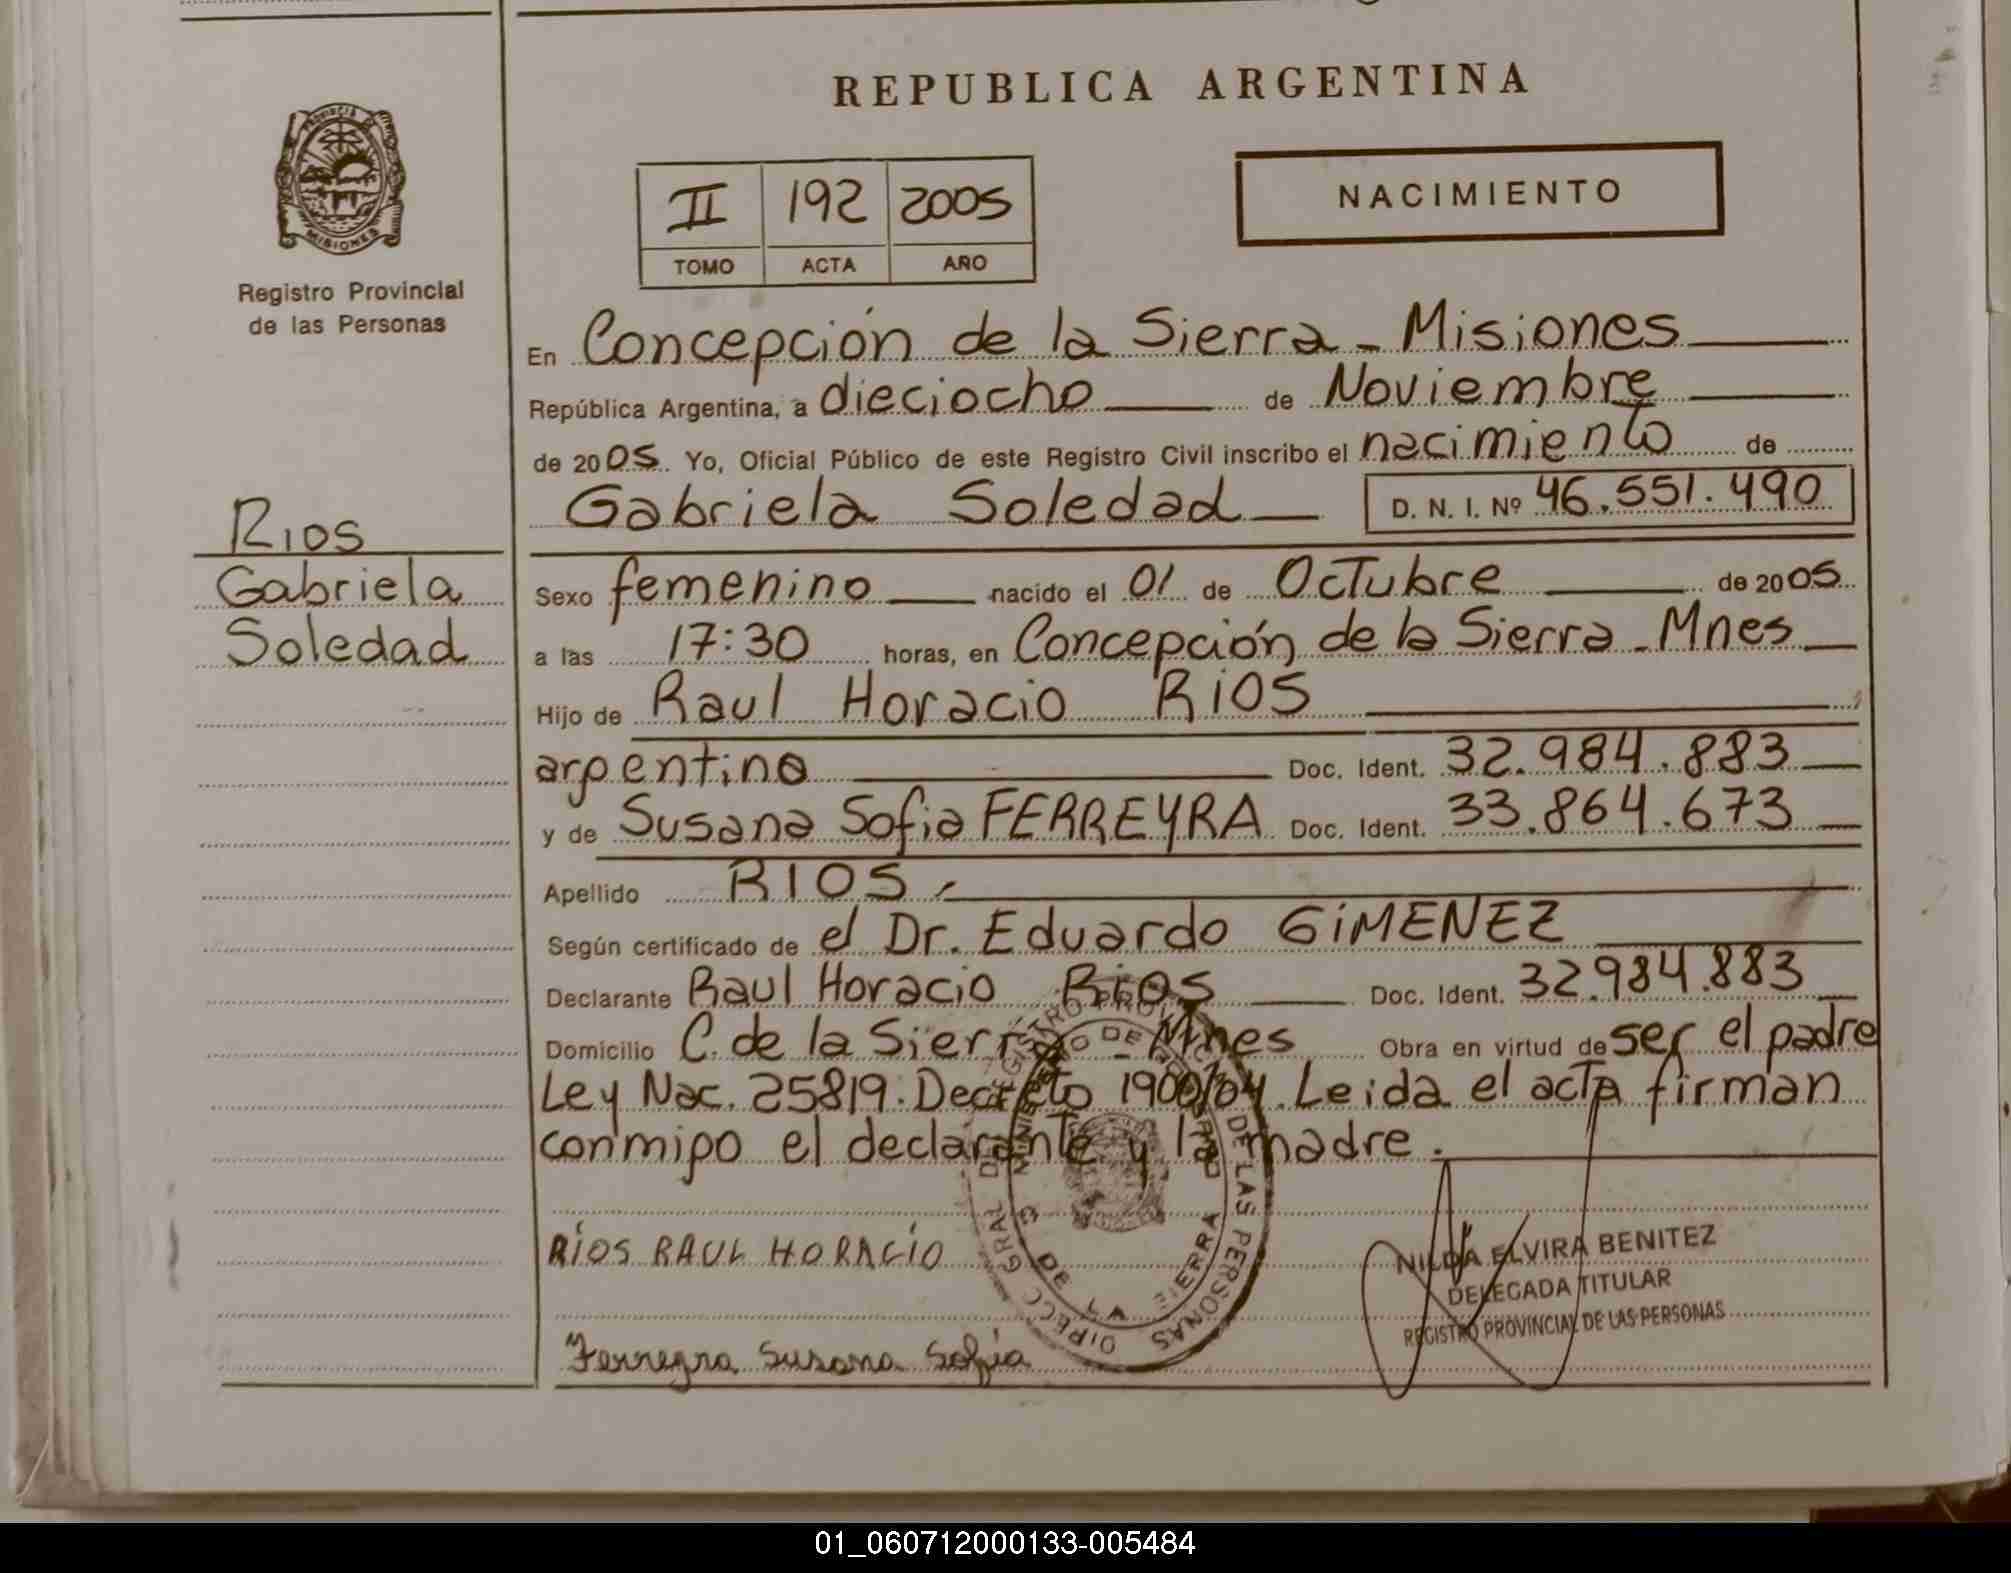 REPUBLICA ARGENTINA
PROVINCIA DE
MISIONES
Registro Provincial
de las Personas
II 192 2005
TOMO ACTA AÑO
NACIMIENTO
En Concepción de la Sierra - Misiones
República Argentina, a dieciocho de Noviembre
de 2005. Yo, Oficial Público de este Registro Civil inscribo el nacimiento de
Gabriela Soledad D. N. I. Nº 46.551.490
Rios
Gabriela
Soledad
Sexo femenino nacido el 01 de Octubre de 2005
a las 17:30 horas, en Concepción de la Sierra - Mnes
Hijo de Raul Horacio RiOS
argentino Doc. Ident. 32.984.883
y de Susana Sofia FERREYRA Doc. Ident. 33.864.673
Apellido RIOS.-
Según certificado de el Dr. Eduardo GiMENEZ
Declarante Raul Horacio Rios Doc. Ident. 32.984.883
Domicilio C. de la Sierra - Mnes Obra en virtud de ser el padre
Ley Nac. 25819. Decreto 1900/04. Leida el acta firman
conmigo el declarante y la madre.
RíOS RAUL HORACIO
Ferreyra Susana Sofia
DIRECC GRAL DEL REGISTRO PROVINCIAL DE LAS PERSONAS
MINISTERIO DE GOBIERNO
DE LA SIERRA
NILDA ELVIRA BENITEZ
DELEGADA TITULAR
REGISTRO PROVINCIAL DE LAS PERSONAS
01_060712000133-005484